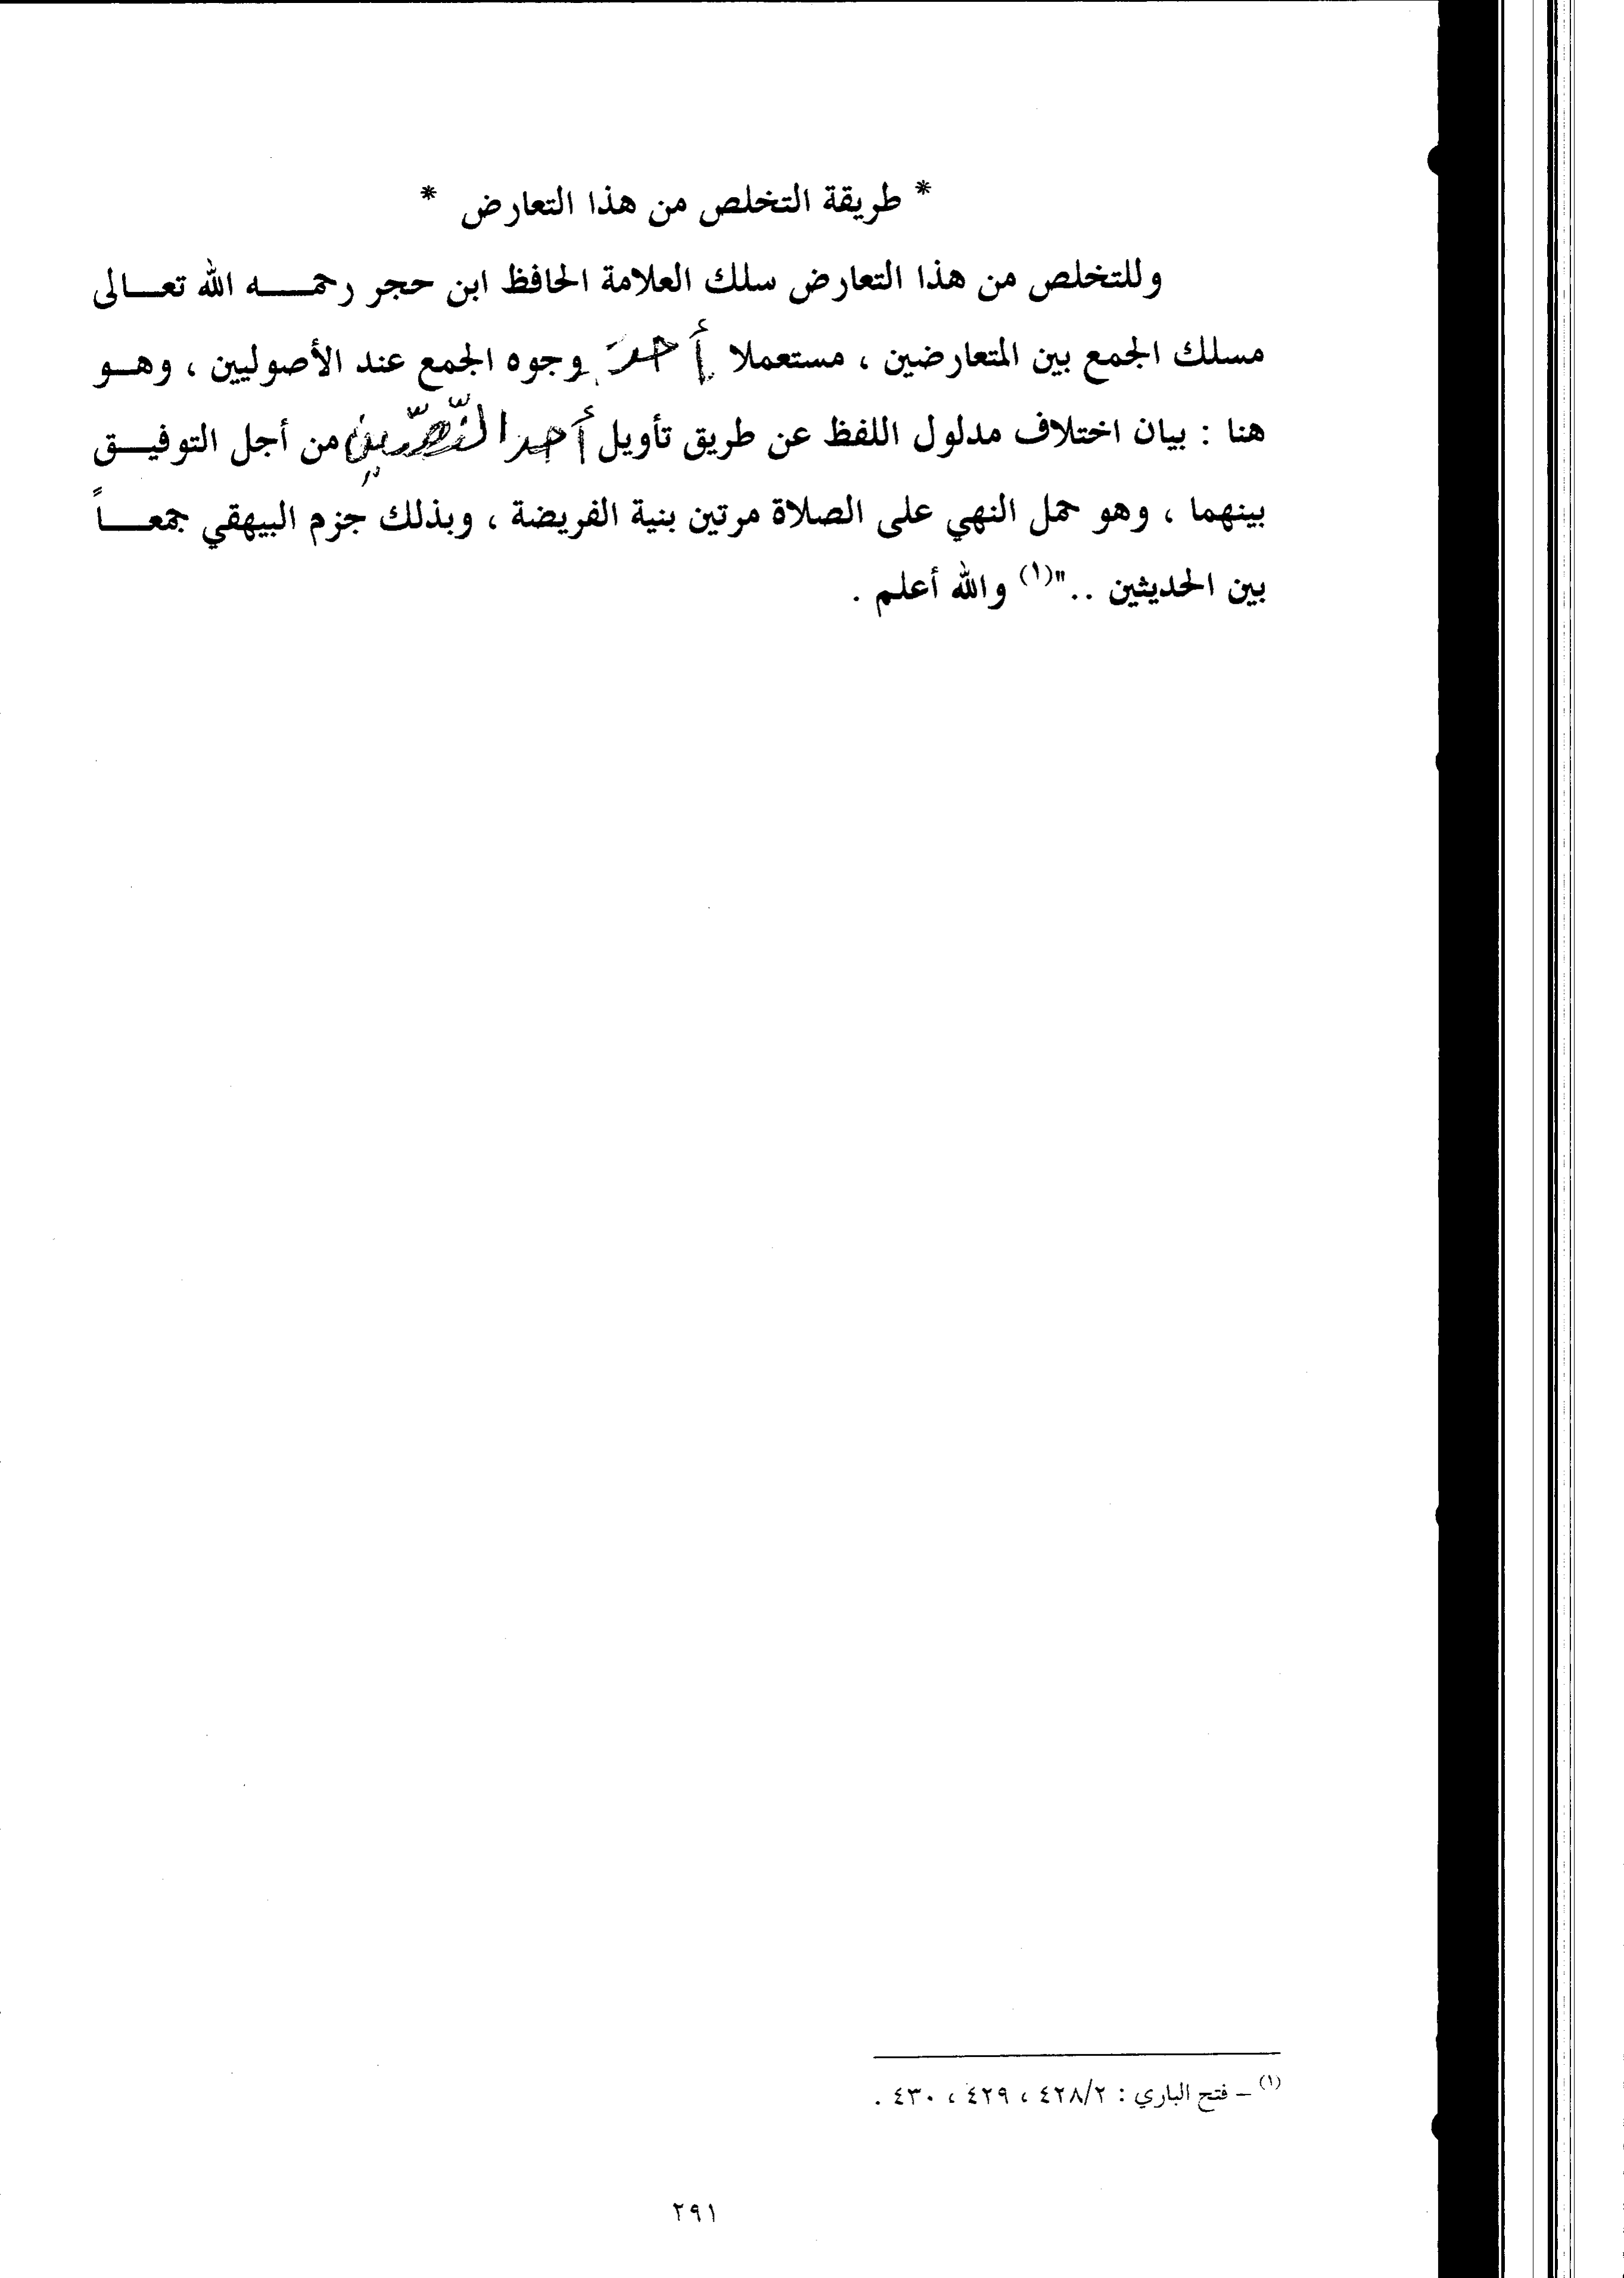 * طريقة التخلص من هذا التعارض *
وللتخلص من هذا التعارض سلك العلامة الحافظ ابن حجر رحمه الله تعالى
مسلك الجمع بين المتعارضين ، مستعملا أحد وجوه الجمع عند الأصوليين ، وهو
هنا : بيان اختلاف مدلول اللفظ عن طريق تأويل أحد النّصّين من أجل التوفيق
بينهما ، وهو حمل النهي على الصلاة مرتين بنية الفريضة ، وبذلك جزم البيهقي جمعاً
بين الحديثين .."(١) والله أعلم .
(١) – فتح الباري : ٤٢٨/٢ ، ٤٢٩ ، ٤٣٠ .
٢٩١